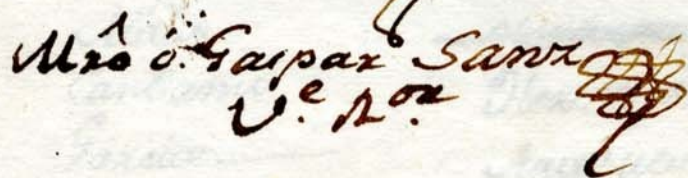 Mro Gaspar Sanz
Ve. Ror.